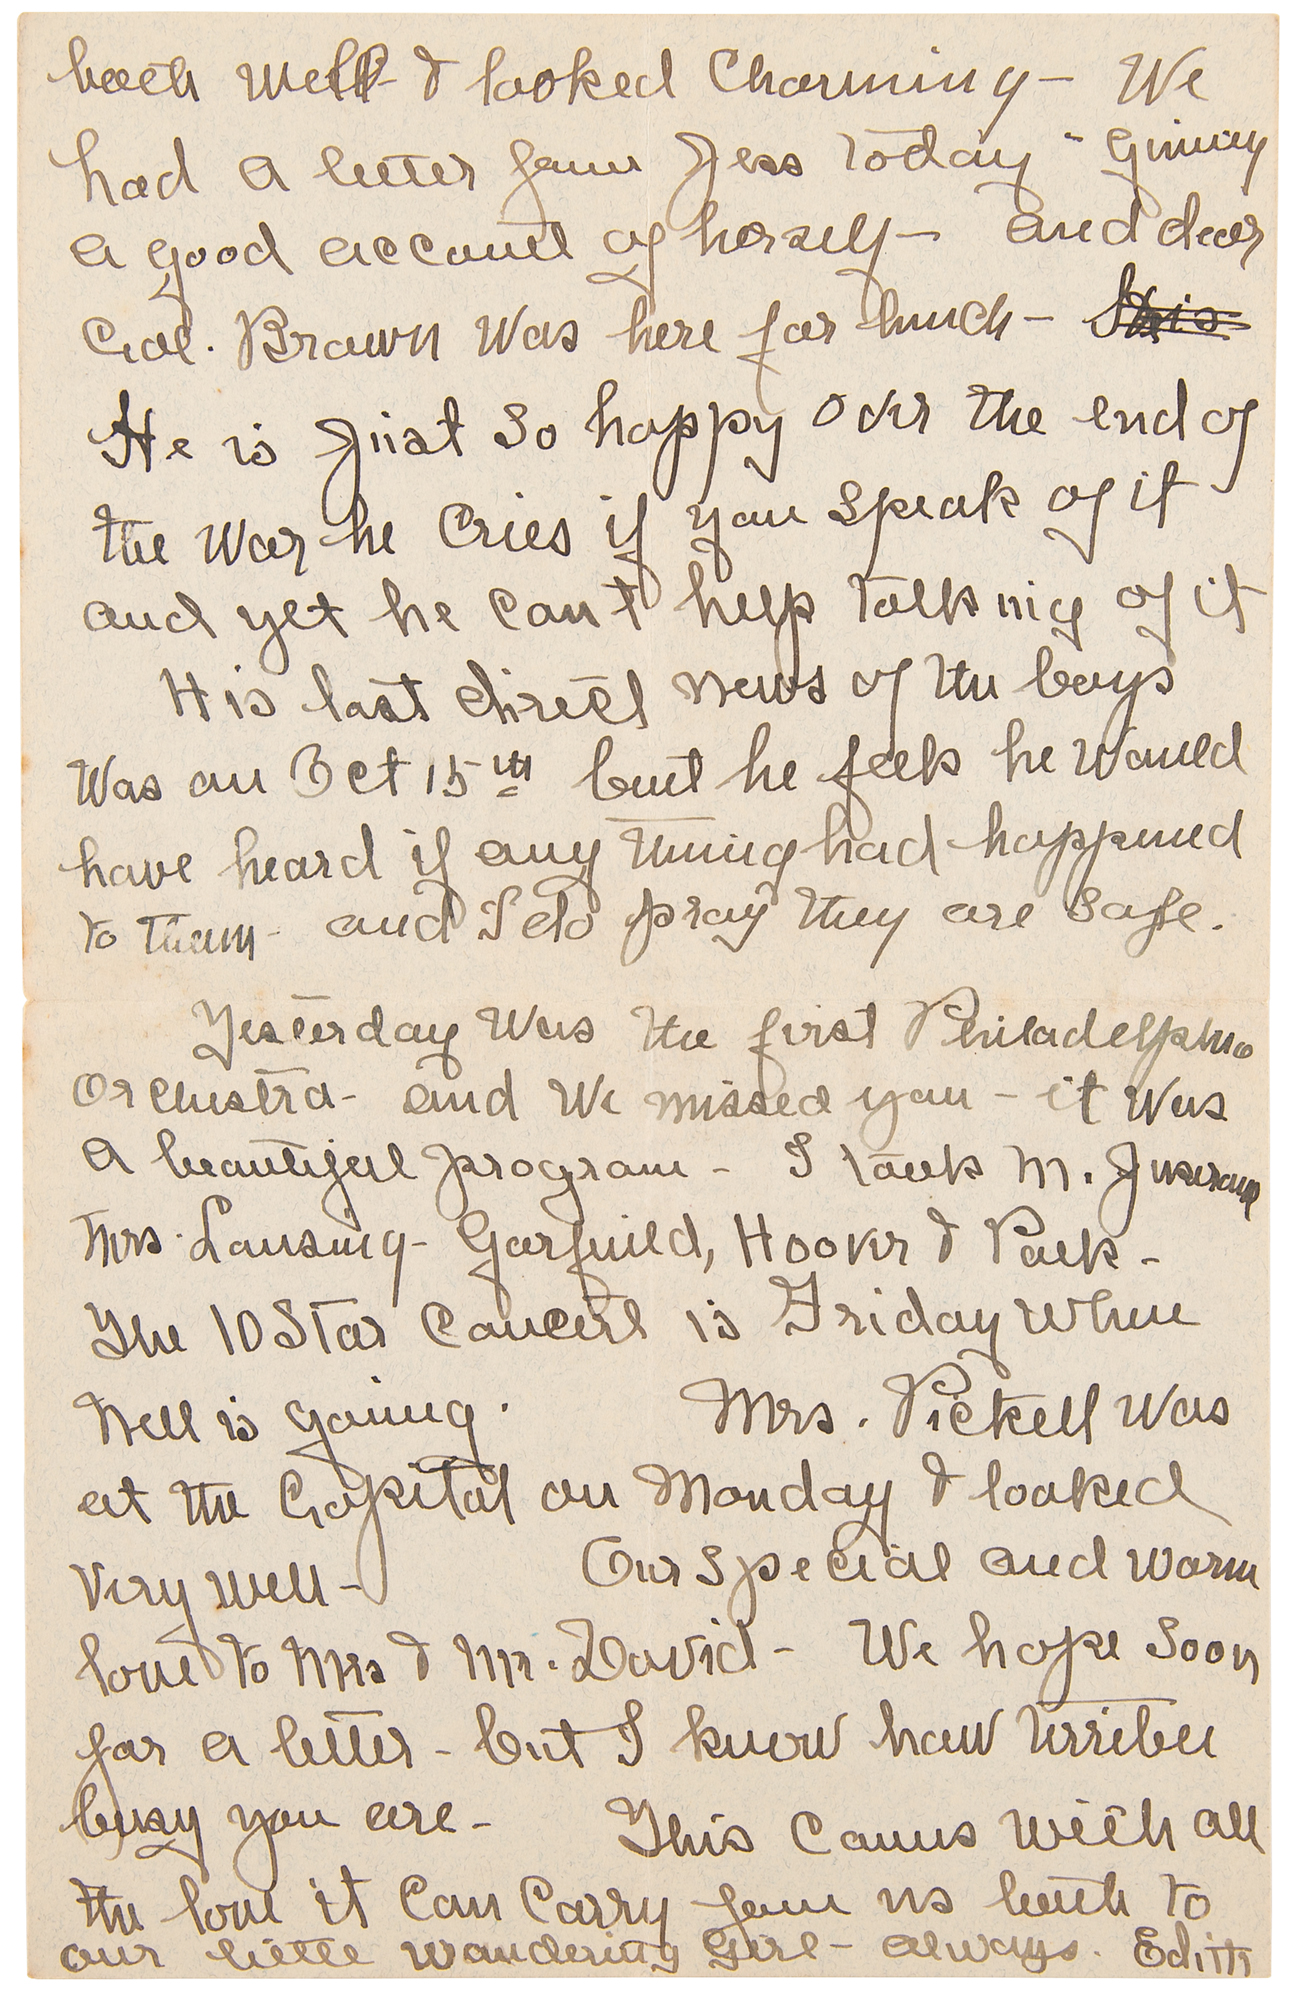 both well & looked Charming - We
had a letter from Jess today - giving
a good account of herself - and dear
Col. Brown was here for lunch - This
He is just so happy over the end of
the War he Cries if you speak of it
and yet he can't help talking of it
His last direct news of the boys
Was on Oct 15th but he feels he would
have heard if any thing had happened
to them - and I do pray they are safe.
Yesterday was the first Philadelphia
Orchestra - and we missed you - it was
a beautiful program - I took M. Jusserand
Mrs. Lansing - Garfield, Hooker & Polk -
The 10 Star Concert is Friday when
Nell is going. Mrs. Pickell was
at the Capital on Monday & looked
Very well - Our special and warm
love to Mrs & Mr. David - We hope soon
for a letter - but I know how terribly
busy you are - This comes with all
the love it Can Carry from us both to
our little wandering girl - always. Edith